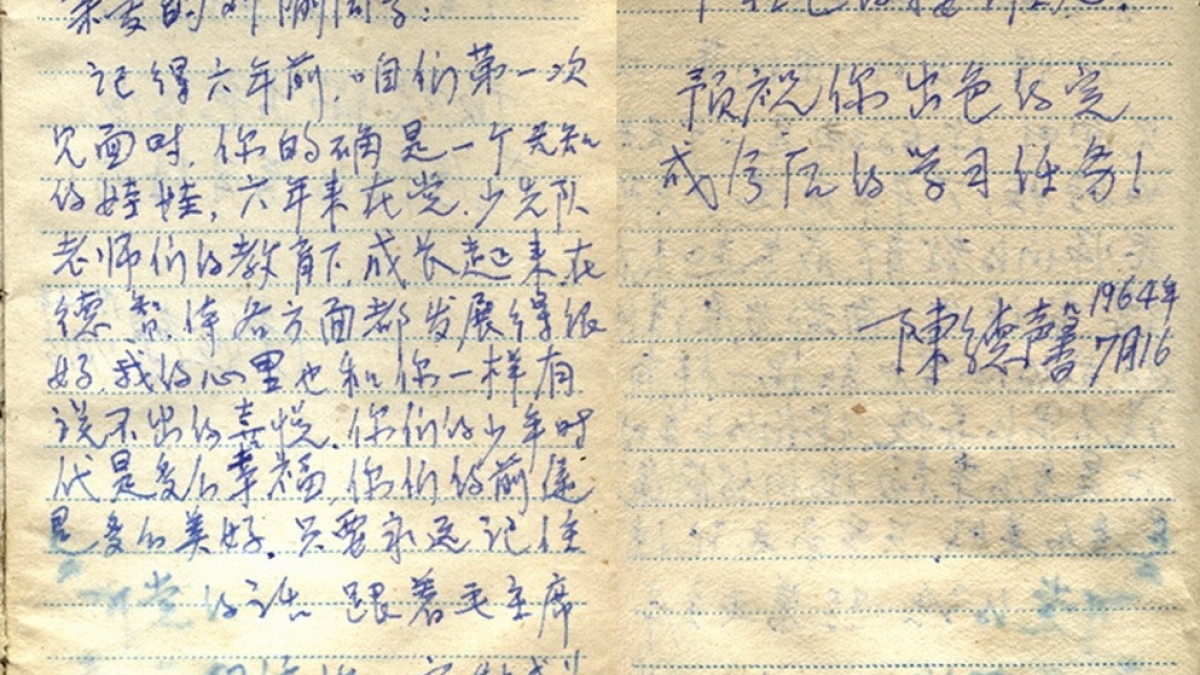 亲爱的 同学：
记得六年前，咱们第一次
见面时，你的确是一个无知
的娃娃，六年来在党、少先队
老师们的教育下，成长起来，在
德、智、体各方面都发展得很
好，我的心里也和你一样有
说不出的喜悦，你们的少年时
代是多么幸福，你们的前途
是多么美好，只要永远记住
听党的话 跟着毛主席
预祝你出色的完
成今后的学习任务！
陳德馨 1964年
7月16